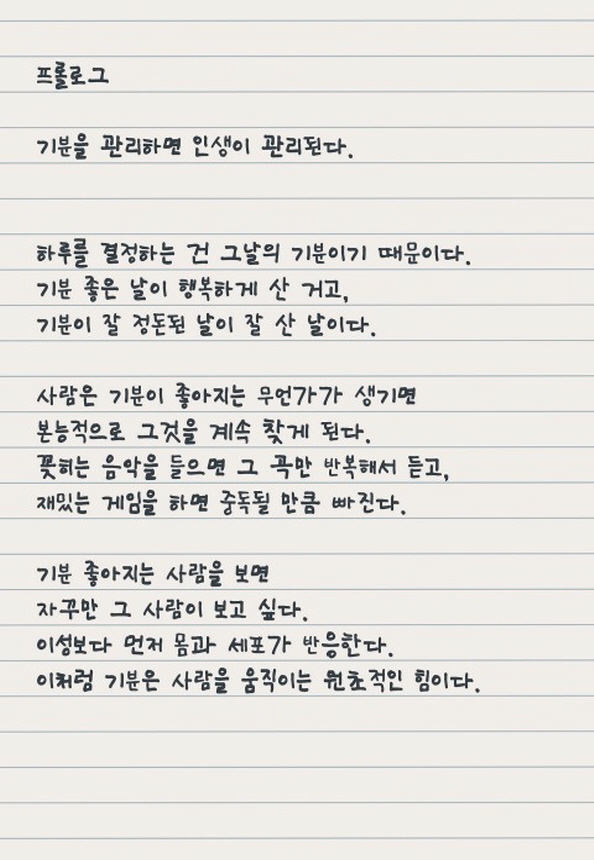 프롤로그
기분을 관리하면 인생이 관리된다.
하루를 결정하는 건 그날의 기분이기 때문이다.
기분 좋은 날이 행복하게 산 거고,
기분이 잘 정돈된 날이 잘 산 날이다.
사람은 기분이 좋아지는 무언가가 생기면
본능적으로 그것을 계속 찾게 된다.
꽂히는 음악을 들으면 그 곡만 반복해서 듣고,
재밌는 게임을 하면 중독될 만큼 빠진다.
기분 좋아지는 사람을 보면
자꾸만 그 사람이 보고 싶다.
이성보다 먼저 몸과 세포가 반응한다.
이처럼 기분은 사람을 움직이는 원초적인 힘이다.